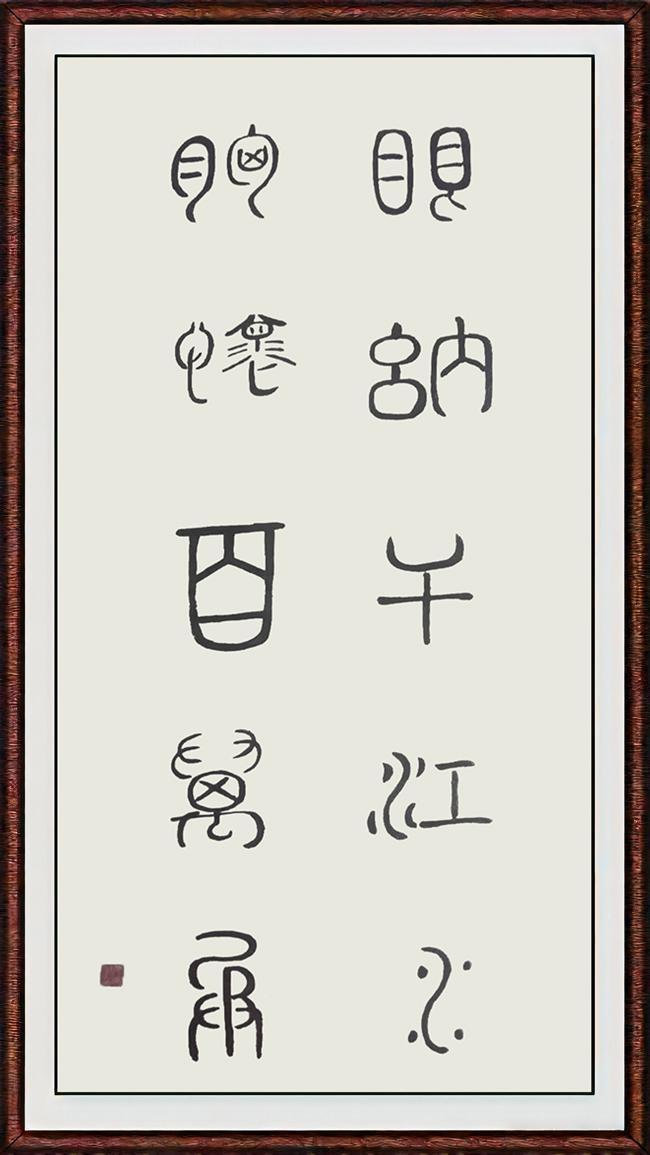 眼納千江水
胸懷百萬兵